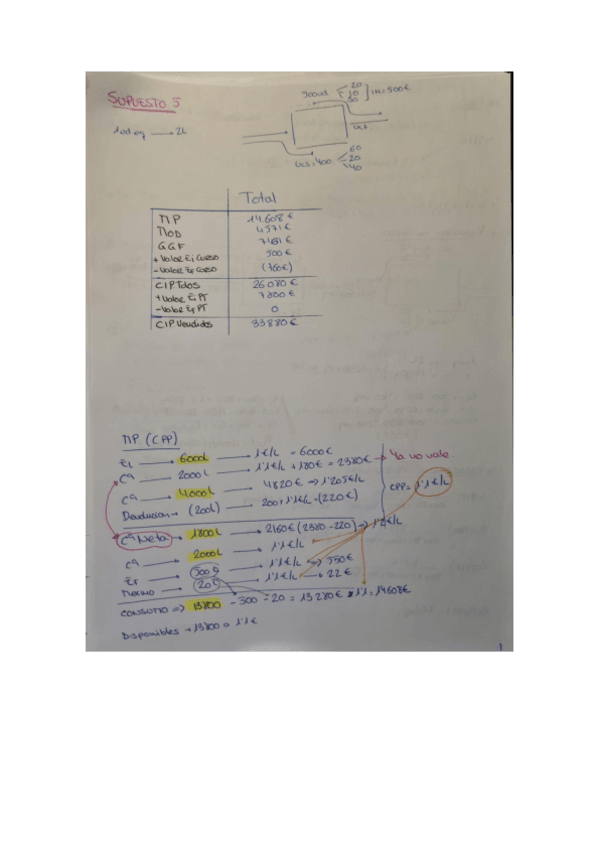 SUPUESTO 5
20
10
30
IN: 500€
2L
Ucs: 400
60
20
40
Total
MP 14.608€
MOD 4571€
GGF 7161€
+ Valor Ei Curso 500€
- Valor Ef Curso (760€)
CIPTdos 26080€
+ Valor Ei PT 7800€
- Valor Ef PT 0
CIP Vendidos 33880€
MP (CPP)
Ei → 6000L → 1€/L = 6000€
Cª → 2000L → 1'1€/L + 180€ = 2380€ → Ya no vale
Cª → 4000L → 4820€ → 1'205€/L
CPP = 1'1€/L
Devolucion → (200L) 200 x 1'1€/L = (220€)
Cª Neta → 1800L → 2160€ (2380 - 220) → 1'2€/L
Cª → 2000L → 1'1€/L
Ef → 500 → 1'1€/L → 550€
Merma → 20 → 1'1€/L → 22€
CONSUMO => 13800 - 500 - 20 = 13280€ x 1'1 = 14608€
Disponibles → 13800 a 1'1€
1